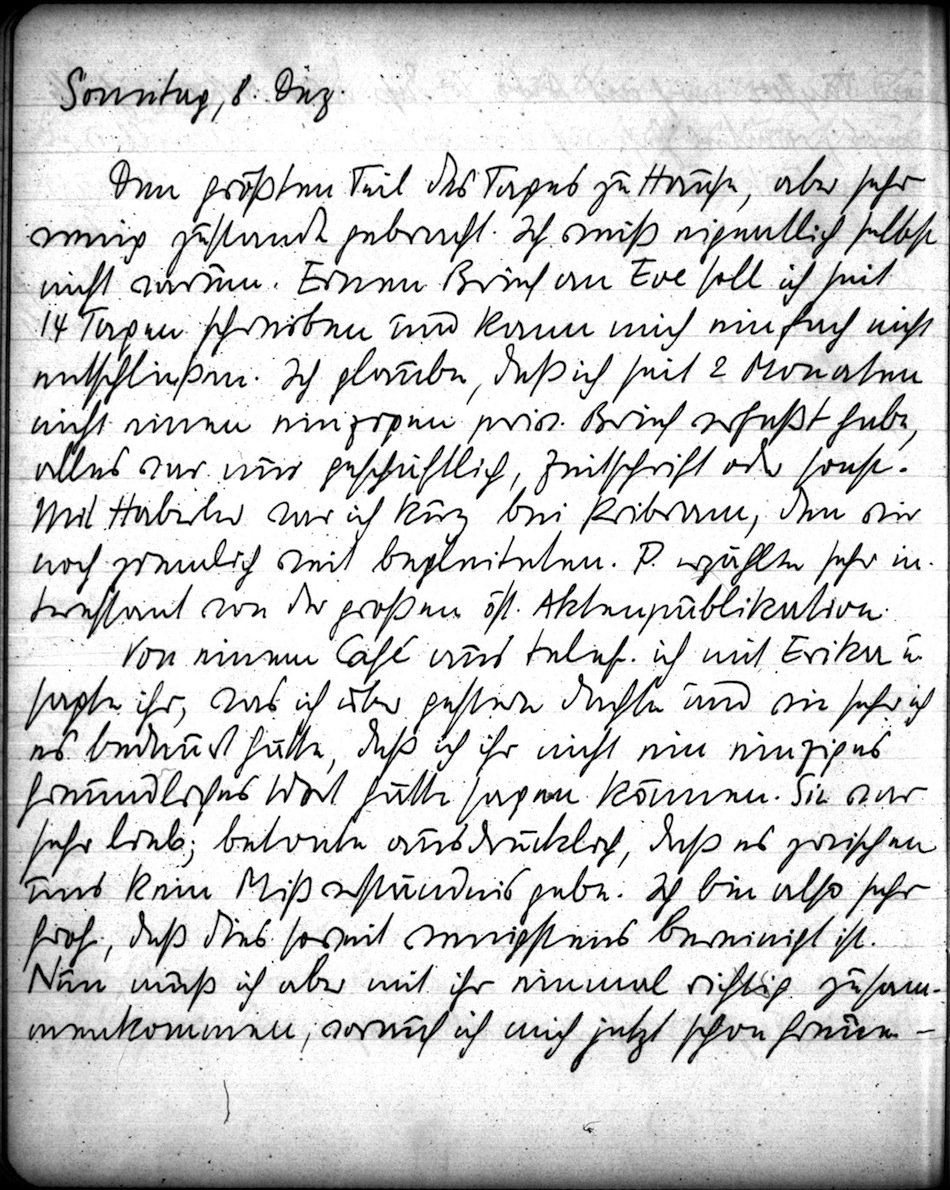 Sonntag, 8. Dez.
Den größten Teil des Tages zu Hause, aber sehr
wenig zustande gebracht. Ich weiß eigentlich selbst
nicht warum. Einen Brief an Eve soll ich seit
14 Tagen schreiben und kann mich einfach nicht
entschließen. Ich glaube, daß ich seit 2 Monaten
nicht einen einzigen priv. Brief verfaßt habe,
alles war nur geschäftlich, Zeitschrift oder sonst.
Mit Haberler war ich kurz bei Pribram, den wir
noch ziemlich weit begleiteten. P. erzählte sehr in-
teressant von der großen öst. Aktenpublikation.
Von einem Café aus telef. ich mit Erika u.
sagte ihr, was ich über gestern dachte und wie sehr ich
es bedauert hätte, daß ich ihr nicht ein einziges
freundliches Wort hätte sagen können. Sie war
sehr lieb; betonte ausdrücklich, daß es zwischen
uns kein Mißverständnis gebe. Ich bin also sehr
froh, daß dies soweit wenigstens bereinigt ist.
Nun muß ich aber mit ihr einmal richtig zusam-
menkommen, worauf ich mich jetzt schon freue. –